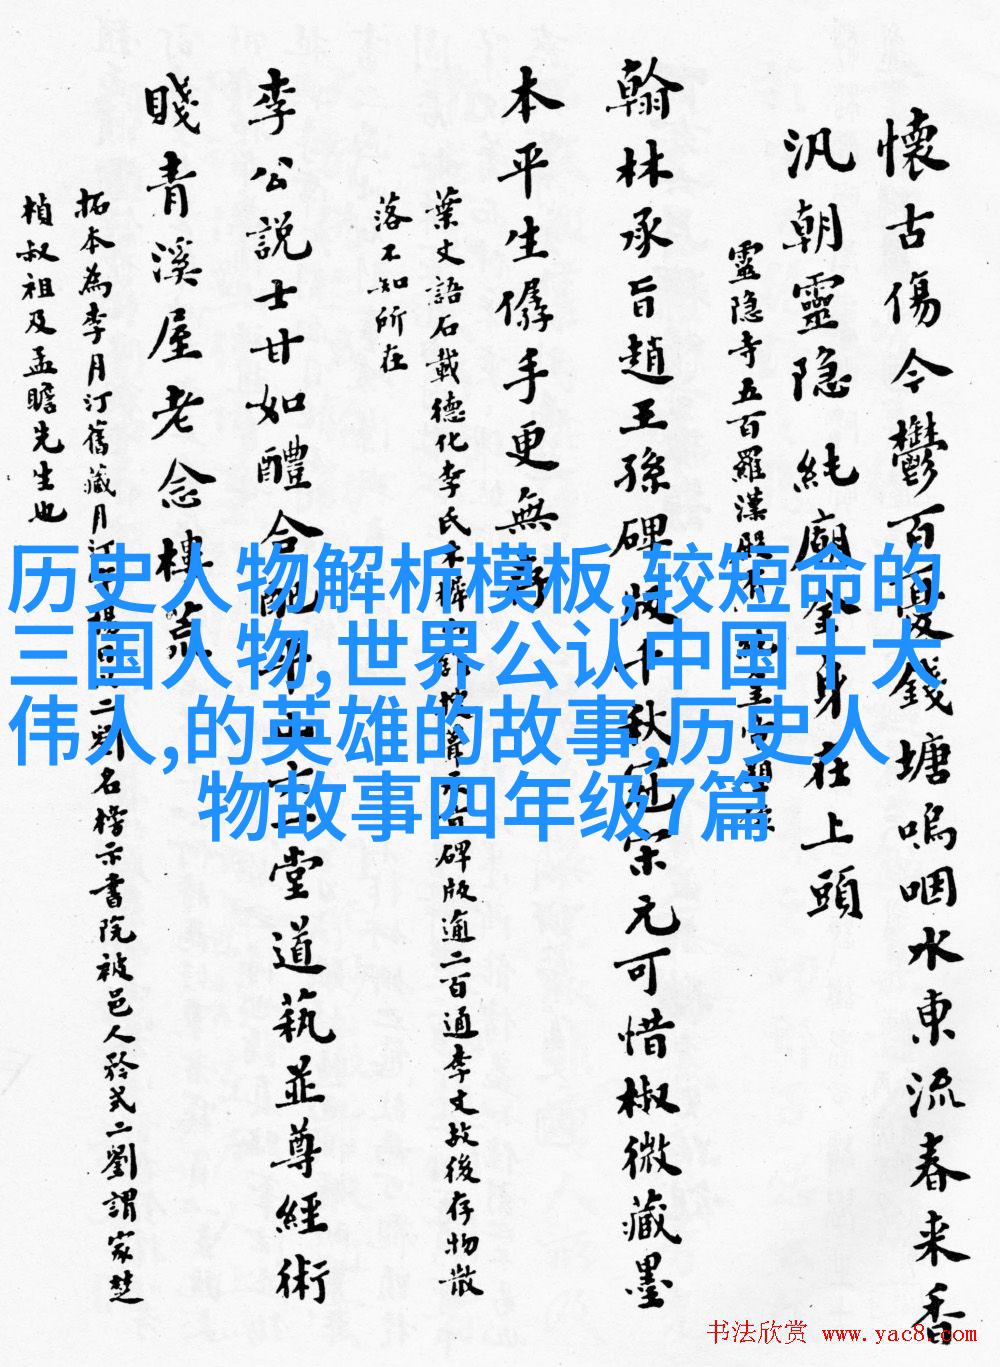 懷古傷今鬱百憂錢塘嗚咽水東流春来香
汎朝靈隐純廟金身在上頭
靈隐寺五百羅漢殿有
翰林承旨趙王孫碑版千秋冠宋元可惜椒微藏墨
本平生儔手更無
葉文語石載德化李氏木樨碑版逾二百通李文故後存物散
落不知所在
李公説士甘如醴合配堂道藝並尊經術
賤青溪屋老念樓
拓本為李月汀舊藏月汀二劉名榜示書院被邑人矜式二劉謂家楚
楨叔祖及孟瞻先生也
历史人物解析模板,较短命的
三国人物,世界公认中国十大
伟人,的英雄的故事,历史人
物故事四年级7篇
书法欣赏 www.yac8.com